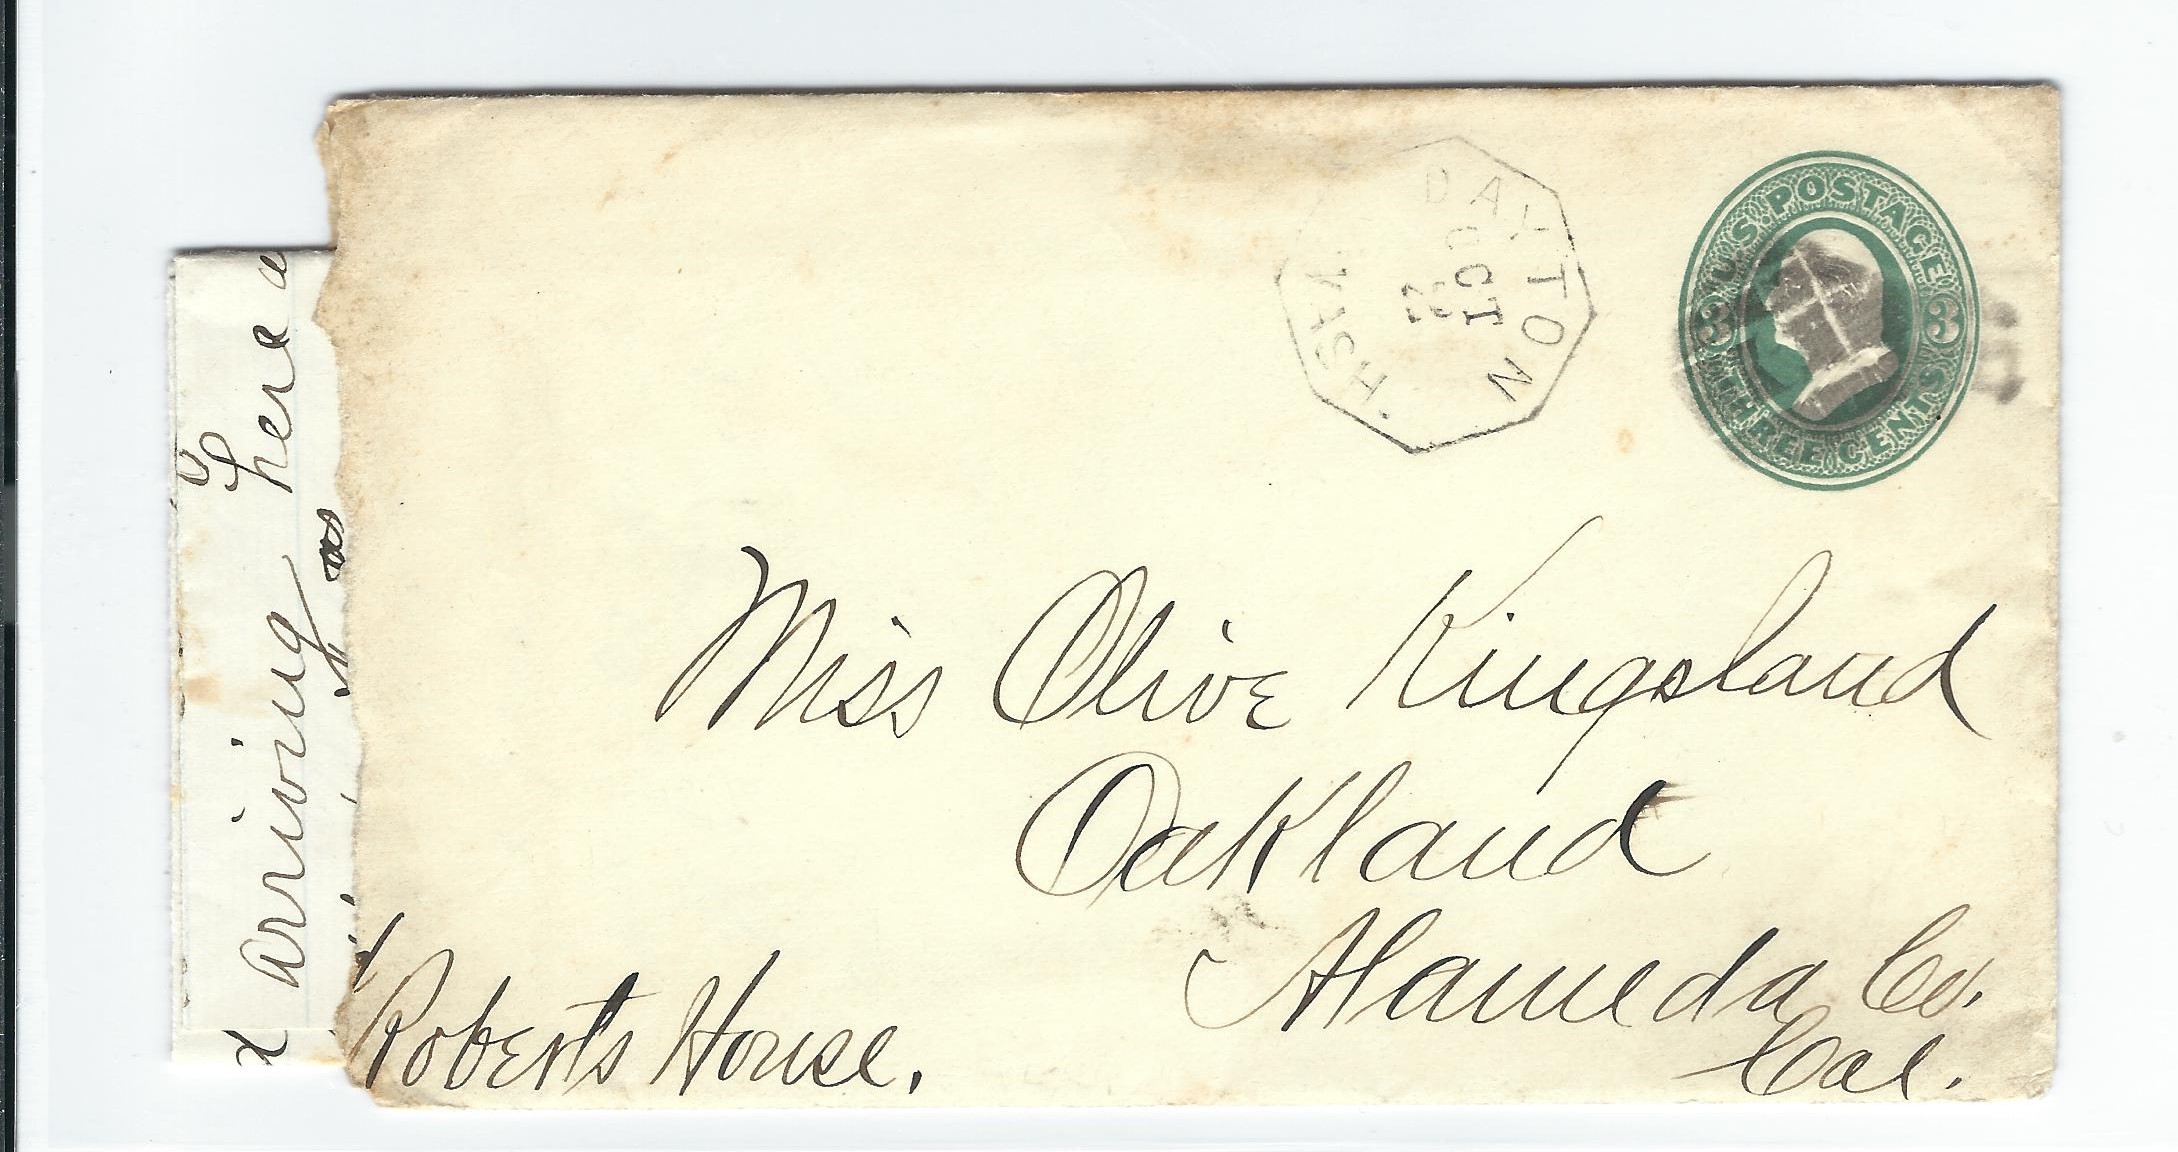 DAYTON
OCT
22
WASH.
U.S. POSTAGE
3 3
THREE CENTS
Miss Olive Kingsland
Oakland
Alameda Co.
Cal.
Roberts House.
arriving here